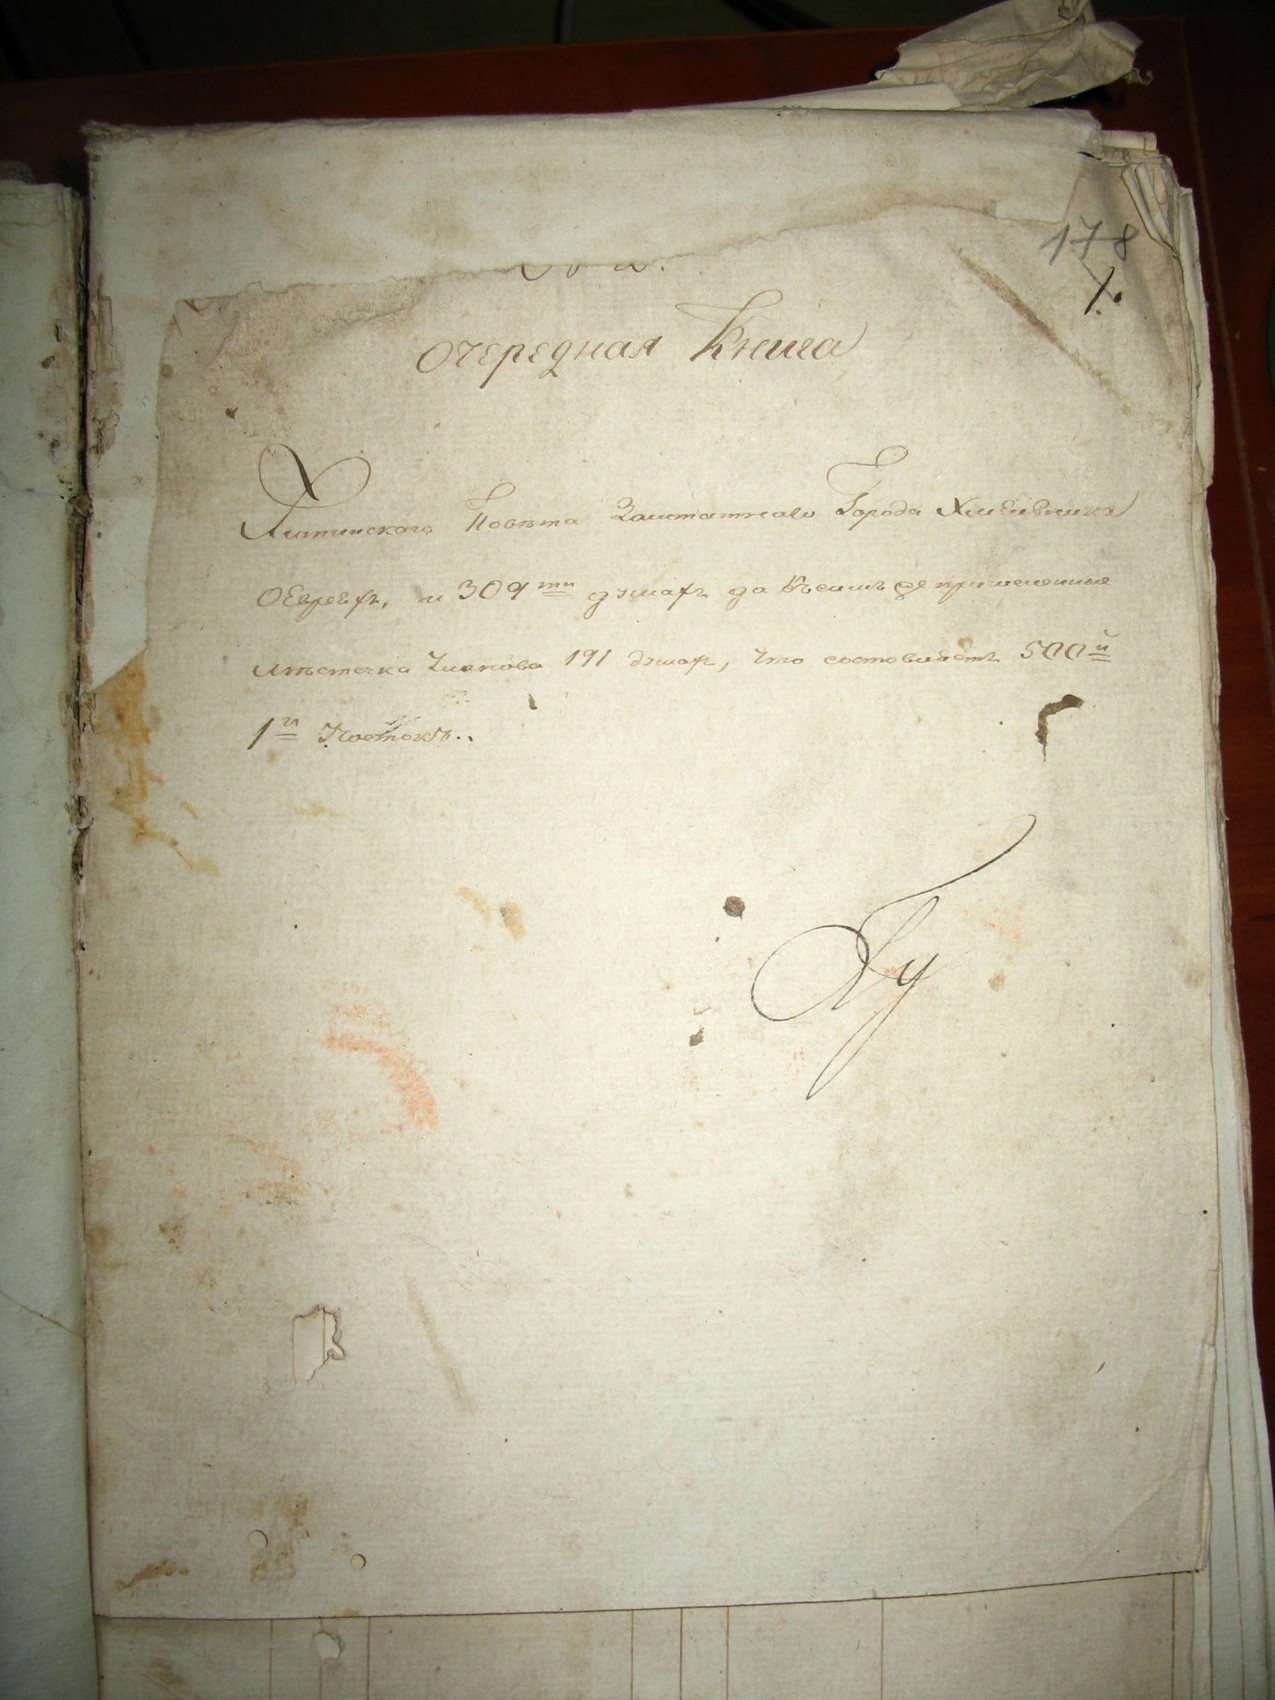 178
1.
Очередная Книга
Литинскаго Повѣта Заштатнаго Города Хмельника
О Евреѣхъ, и 309ти душахъ да къ симъ же причисленные
мѣстечка Уланова 191 душах, что составляетъ 500й
1й Участокъ..